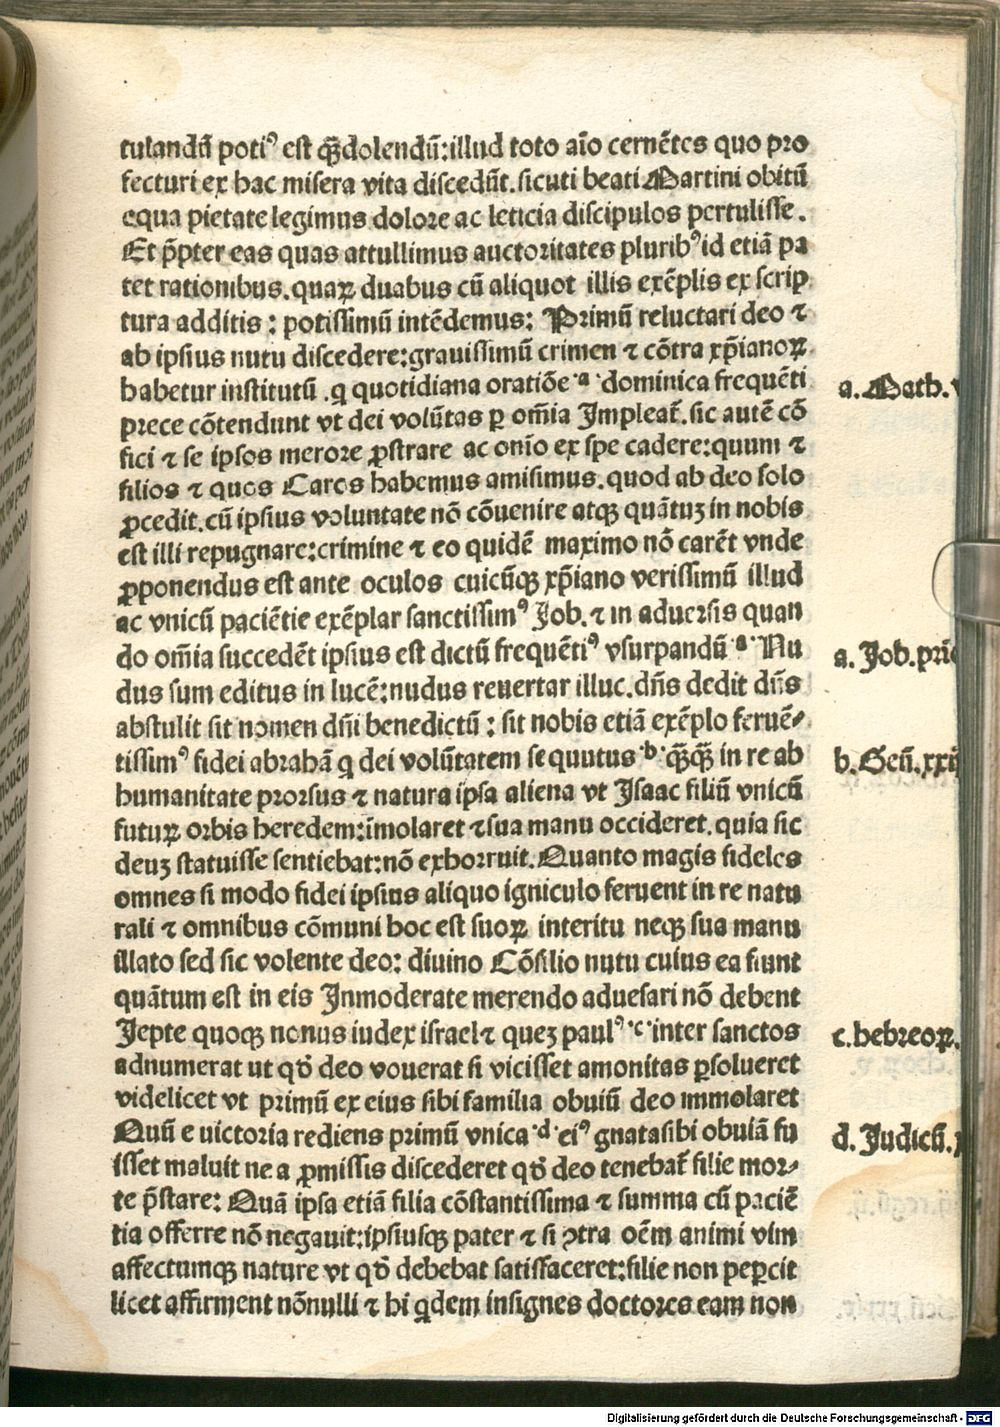 tulandū potiꝰ est q̄ꝫ dolendū: illud toto aīo cernētes quo pro
fecturi ex hac misera vita discedūt. sicuti beati Martini obitū
equa pietate legimus dolore ac leticia discipulos pertulisse.
Et ꝓpter eas quas attullimus auctoritates pluribꝰ id etiā pa
tet rationibus. quaꝝ duabus cū aliquot illis exēplis ex scrip
tura additis: potissimū intēdemus: Primū reluctari deo ⁊
ab ipsius nutu discedere: grauissimū crimen ⁊ cōtra xp̄ianoꝝ
habetur institutū. q quotidiana oratiōe ·a· dominica frequēti
prece cōtendunt vt dei volūtas ꝑ om̄ia Impleat̄. sic autē cō
fici ⁊ se ipsos merore ꝓstrare ac onīo ex spe cadere: quum ⁊
filios ⁊ quos Caros habemus amisimus. quod ab deo solo
ꝓcedit. cū ipsius voluntate nō cōuenire atqꝫ quātuꝫ in nobis
est illi repugnare: crimine ⁊ eo quidē maximo nō carēt vnde
ꝓponendus est ante oculos cuicūqꝫ xp̄iano verissimū illud
ac vnicū paciētie exēplar sanctissimꝰ Job. ⁊ in aduersis quan
do om̄ia succedēt ipsius est dictū frequētiꝰ vsurpandū ·a· Nu
dus sum editus in lucē: nudus reuertar illuc. dn̄s dedit dn̄s
abstulit sit nomen dn̄i benedictū: sit nobis etiā exēplo feruē⸗
tissimꝰ fidei abrahā q dei volūtatem sequutus ·b· q̄ꝫq̄ꝫ in re ab
humanitate prorsus ⁊ natura ipsa aliena vt Isaac filiū vnicū
futuꝝ orbis heredem: īmolaret ⁊ sua manu occideret. quia sic
deuꝫ statuisse sentiebat: nō exhorruit. Quanto magis fideles
omnes si modo fidei ipsius aliquo igniculo feruent in re natu
rali ⁊ omnibus cōmuni hoc est suoꝝ interitu neqꝫ sua manu
illato sed sic volente deo: diuino Cōsilio nutu cuius ea fiunt
quātum est in eis Inmoderate merendo aduesari nō debent
Jepte quoqꝫ nonus iudex israel ⁊ queꝫ paulꝰ ·c· inter sanctos
adnumerat ut qd̄ deo vouerat si vicisset amonitas ꝑsolueret
videlicet vt primū ex eius sibi familia obuiū deo immolaret
Quū e uictoria rediens primū vnica ·d· eiꝰ gnata sibi obuiā fu
isset maluit ne a ꝓmissis discederet qd̄ deo tenebat̄ filie mor⸗
te p̄stare: Quā ipsa etiā filia cōstantissima ⁊ summa cū paciē
tia offerre nō negauit: ipsiusqꝫ pater ⁊ si ꝯtra oēm animi vim
affectumqꝫ nature vt qd̄ debebat satisfaceret: filie non peꝑcit
licet affirment nōnulli ⁊ hi qͥdem insignes doctores eam non
a. Math.
a. Job. pri
b. Geñ. xxi
c. hebreoꝝ.
d. Judicū.
Digitalisierung gefördert durch die Deutsche Forschungsgemeinschaft - DFG